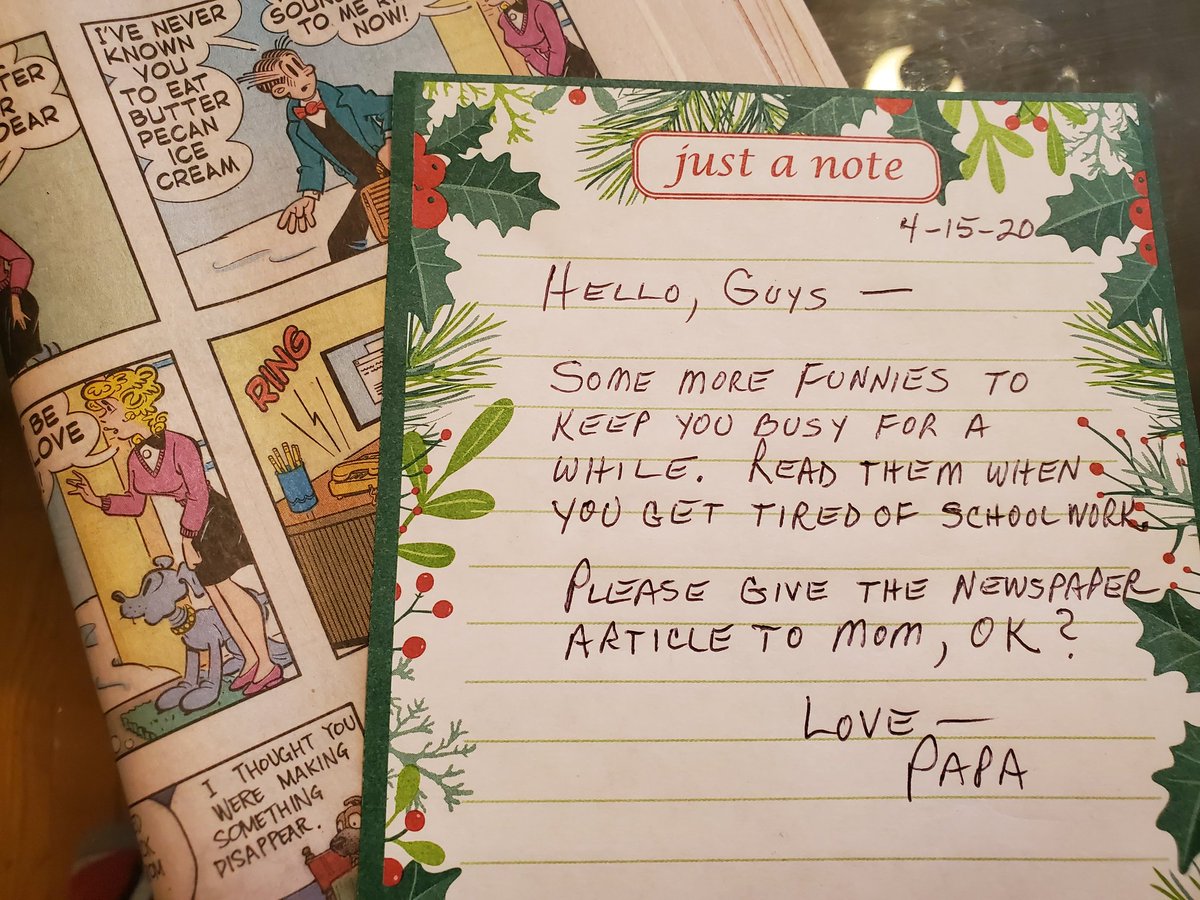 TER
R
DEAR
I'VE NEVER
KNOWN
YOU
TO EAT
BUTTER
PECAN
ICE
CREAM
TO ME
NOW!
BE
LOVE
RING
I THOUGHT YOU
WERE MAKING
SOMETHING
DISAPPEAR.
just a note
4-15-20
HELLO, GUYS —
SOME MORE FUNNIES TO
KEEP YOU BUSY FOR A
WHILE. READ THEM WHEN
YOU GET TIRED OF SCHOOLWORK.
PLEASE GIVE THE NEWSPAPER
ARTICLE TO MOM, OK?
LOVE —
PAPA